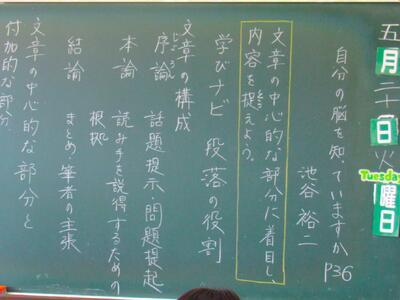 五月三十日火曜日
Tuesday
自分の脳を知っていますか P36
池谷裕二
文章の中心的な部分に着目し、
内容を捉えよう。
とら
学びナビ 段落の役割
文章の構成
序論 話題提示・問題提起
じょろん
本論 読み手を説得するための
根拠
結論 まとめ・筆者の主張
文章の中心的な部分と
付加的な部分